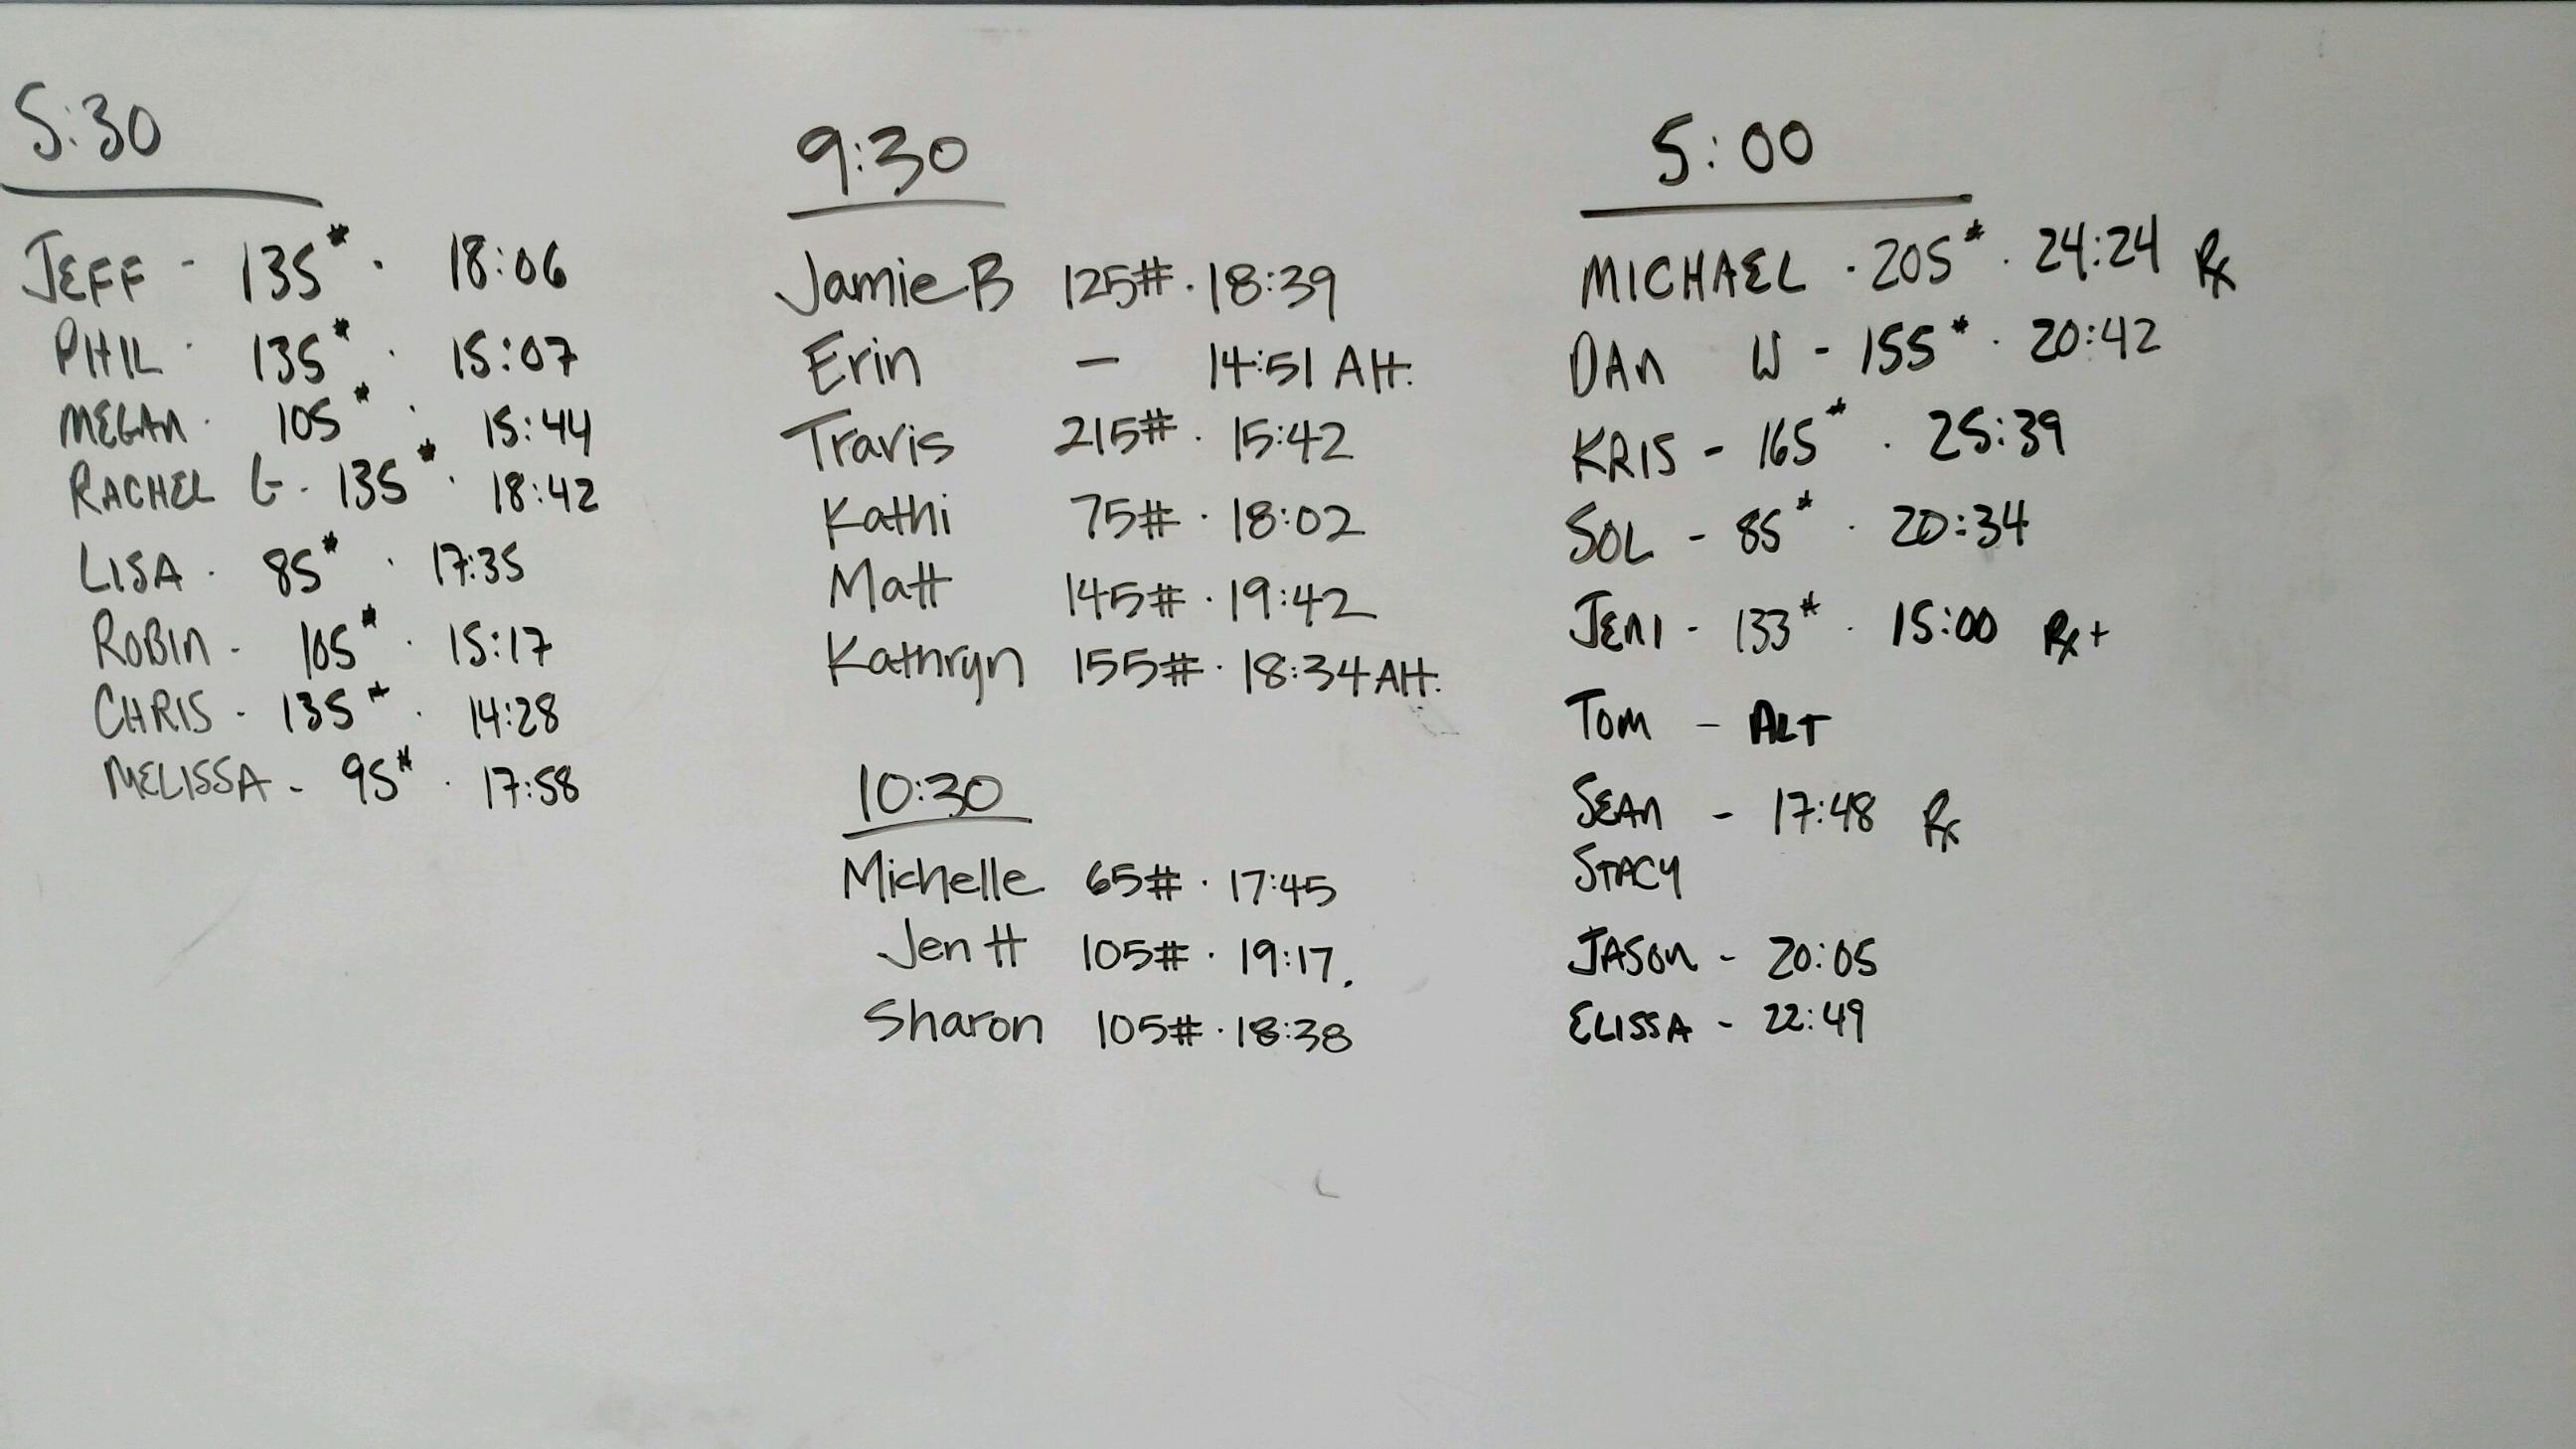 5:30
JEFF - 135# · 18:06
PHIL · 135# · 15:07
MEGAN · 105# · 15:44
RACHEL G - 135# · 18:42
LISA · 85# · 17:35
ROBIN - 105# · 15:17
CHRIS - 135# · 14:28
MELISSA - 95# · 17:58
9:30
Jamie B 125# · 18:39
Erin — 14:51 Alt.
Travis 215# · 15:42
Kathi 75# · 18:02
Matt 145# · 19:42
Kathryn 155# · 18:34 Alt.
10:30
Michelle 65# · 17:45
Jen H 105# · 19:17.
Sharon 105# · 18:38
5:00
MICHAEL · 205# · 24:24 Rx
DAN W - 155# · 20:42
KRIS - 165# · 25:39
SOL - 85# · 20:34
JENI - 133# · 15:00 Rx+
TOM - ALT
SEAN - 17:48 Rx
STACY
JASON - 20:05
ELISSA - 22:49